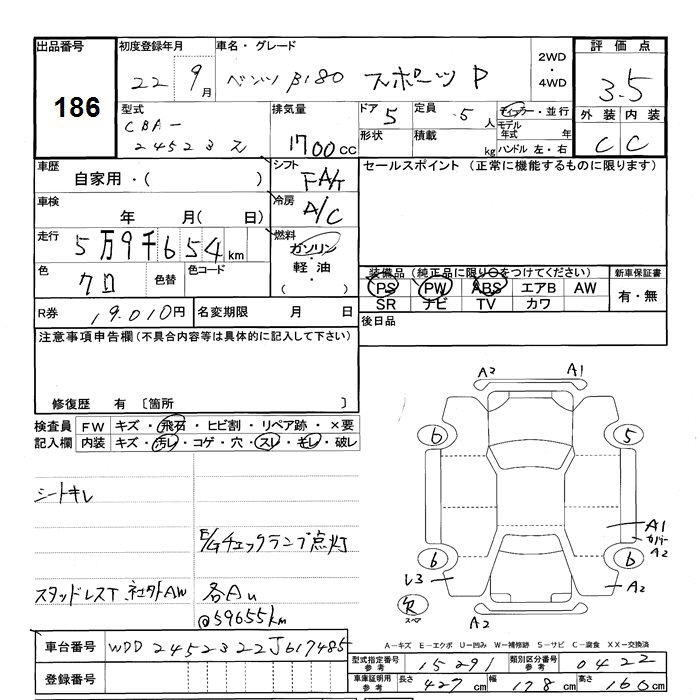 出品番号
186
初度登録年月
22 9月
車名・グレード
ベンツ B180 スポーツ P
2WD
・
4WD
評価点
3.5
型式
CBA-
245232
排気量
1700cc
ドア 5
形状
定員 5人
積載 kg
ディーラー・並行
モデル年式 年
ハンドル 左・右
外装 内装
C C
車歴
自家用・( )
シフト
FA/T
セールスポイント (正常に機能するものに限ります)
車検
年 月( 日)
冷房
A/C
走行
5万9千654km
燃料
ガソリン
・
軽油
・
( )
色
クロ
色替
色コード
装備品(純正品に限り○をつけてください)
PS PW ABS エアB AW
SR ナビ TV カワ
新車保証書
有・無
R券 19,010円
名変期限 月 日
後日品
注意事項申告欄(不具合内容等は具体的に記入して下さい)
修復歴 有 〔箇所 〕
検査員記入欄
FW キズ・飛石・ヒビ割・リペア跡・×要
内装 キズ・汚レ・コゲ・穴・スレ・キレ・破レ
A2 A1
6 5
A1
カバーA2
6 6
L3 A2
欠
スペア
A2
シートキレ
E/Gチェックランプ点灯
スタッドレスT 社外AW 各Au
@59655km
A-キズ E-エクボ U-凹み W-補修跡 S-サビ C-腐食 XX-交換済
車台番号 WDD2452322J617485
登録番号
型式指定番号参考 15291
類別区分番号参考 0422
車庫証明用参考 長さ 427cm 幅 178cm 高さ 160cm